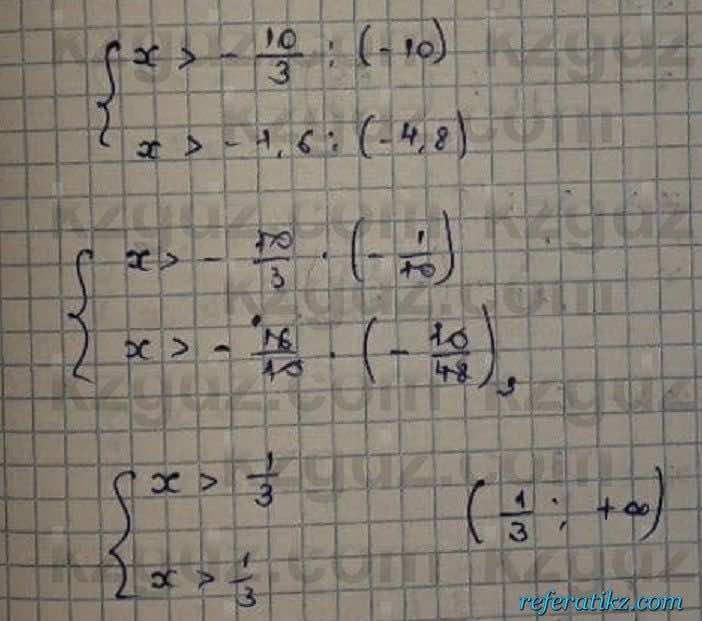 x > - 10/3 : (-10)
x > -1,6 : (-4,8)
x > - 10/3 · (- 1/10)
x > - 16/10 · (- 10/48) 3
x > 1/3
x > 1/3
(1/3 ; +∞)
kzguz.com
referatikz.com